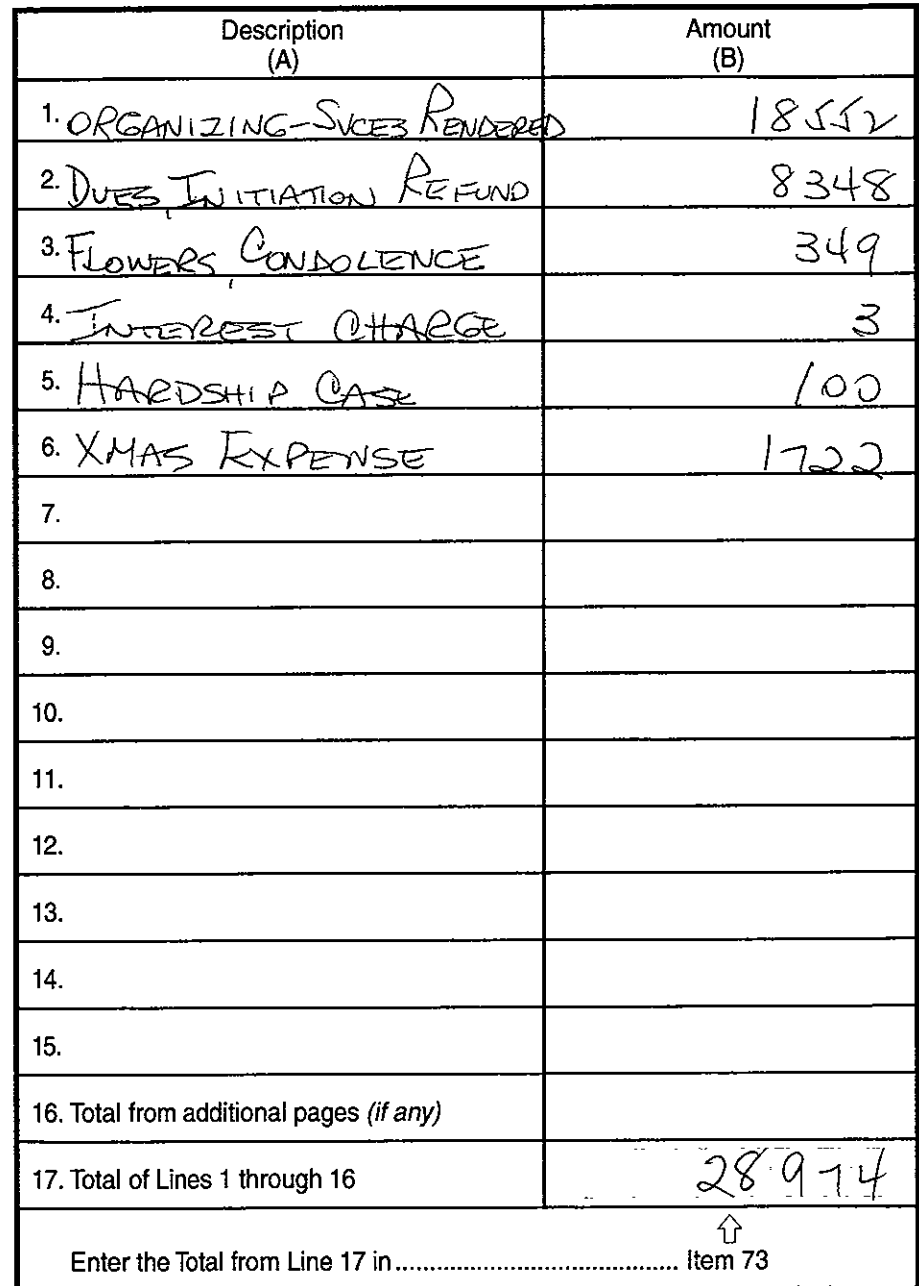 Description
(A)
Amount
(B)
1. ORGANIZING-SVCES RENDERED 18552
2. DUES, INITIATION REFUND 8348
3. FLOWERS, CONDOLENCE 349
4. INTEREST CHARGE 3
5. HARDSHIP CASE 100
6. XMAS EXPENSE 1722
7.
8.
9.
10.
11.
12.
13.
14.
15.
16. Total from additional pages (if any)
17. Total of Lines 1 through 16 28974
Enter the Total from Line 17 in ........................................ Item 73